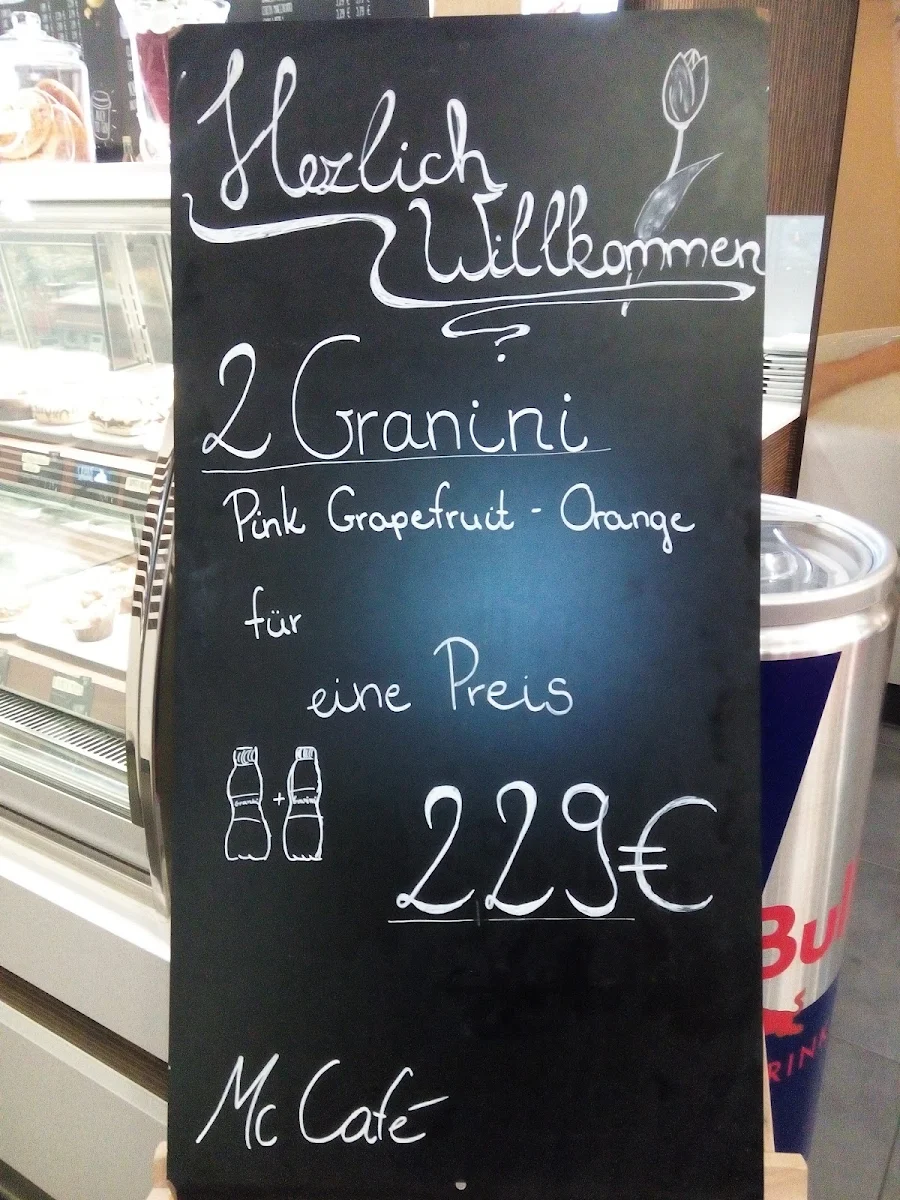 Hezlich
Willkommen
2 Granini
Pink Grapefruit - Orange
für
eine Preis
Granini + Granini
2,29€
Mc Café
Bul
RINK